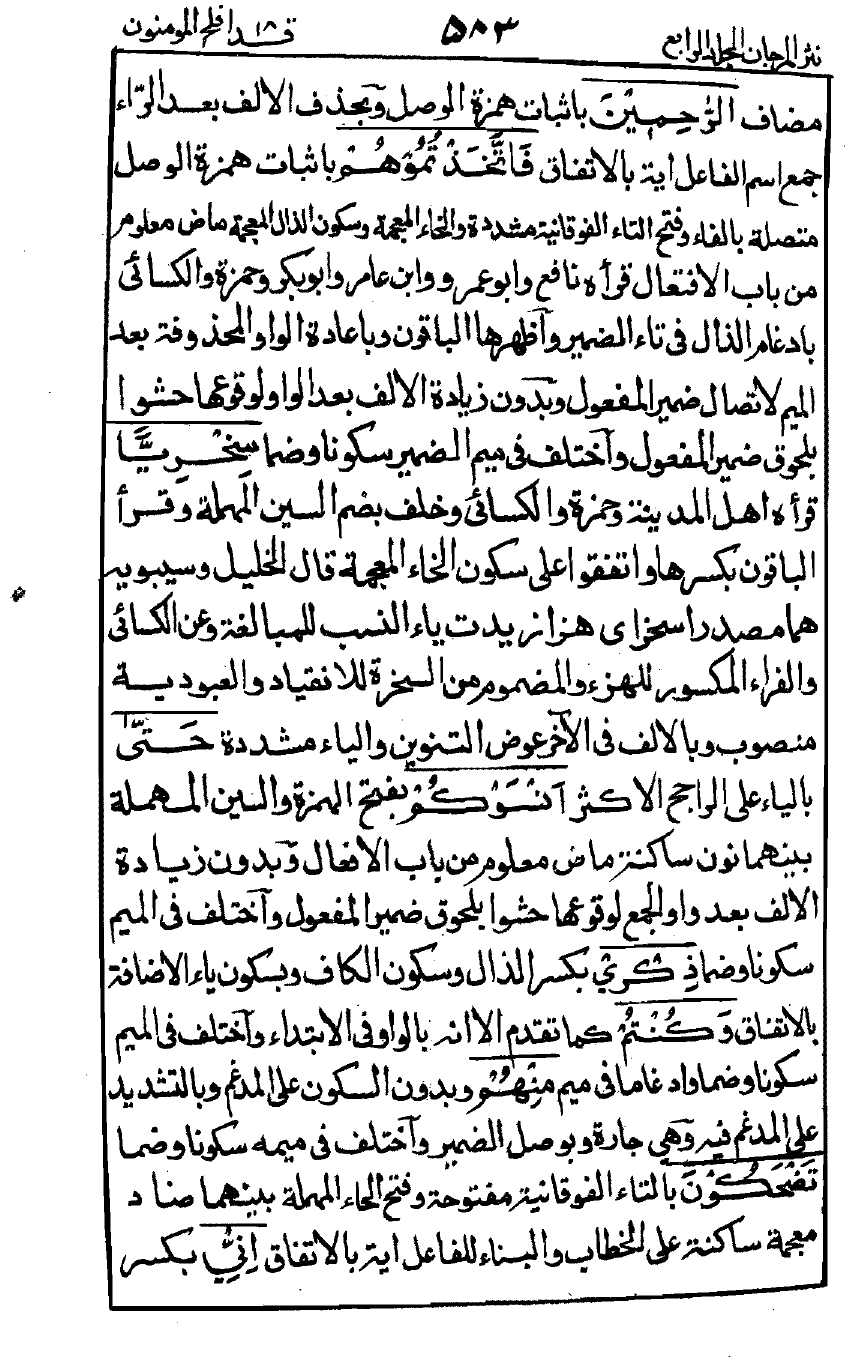 نثر المرجان المجلد الرابع
٥٨٣
قد افلح ١٨ المومنون
مضاف الرّٰحِمِيْنَ باثبات همزة الوصل وبحذف الالف بعد الرّاء
جمع اسم الفاعل اية بالاتفاق فَاتَّخَذْتُمُوْهُمْ باثبات همزة الوصل
متصلة بالفاء وفتح التاء الفوقانية مشددة والخاء المعجمة وسكون الذال المعجمة ماض معلوم
من باب الافتعال قرأه نافع وابو عمرو وابن عامر وابو بكر وحمزة والكسائى
بادغام الذال فى تاء الضمير وأظهرها الباقون وباعادة الواو المحذوفة بعد
الميم لاتصال ضمير المفعول وبدون زيادة الالف بعد الواو لوقوعها حشوا
بلحوق ضمير المفعول وآختلف فى ميم الضمير سكونا وضما سِخْرِيًّا
قرأه اهل المدينة وحمزة والكسائى وخلف بضم السين المهملة وقرأ
الباقون بكسرها واتفقوا على سكون الخاء المعجمة قال الخليل وسيبويه
هما مصدرا سخر اى هزا زيدت ياء النسب للمبالغة وعن الكسائى
والفراء المكسور للهزء والمضموم من السخرة للانقياد والعبودية
منصوب وبالالف فى الآخر عوض التنوين والياء مشددة حَتّٰى
بالياء على الراجح الاكثر اَنْسَوْكُمْ بفتح الهمزة والسين المهملة
بينهما نون ساكنة ماض معلوم من باب الافعال وبدون زيادة
الالف بعد واو الجمع لوقوعها حشوا بلحوق ضمير المفعول وآختلف فى الميم
سكونا وضما ذِكْرِيْ بكسر الذال وسكون الكاف وبسكون ياء الاضافة
بالاتفاق وَكُنْتُمْ كما تقدم الا انه بالواو فى الابتداء وآختلف فى الميم
سكونا وضما وادغاما فى ميم مِنْهُمْ وبدون السكون على المدغم وبالتشديد
على المدغم فيه وهى جارة وبوصل الضمير وآختلف فى ميمه سكونا وضما
تَضْحَكُوْنَ بالتاء الفوقانية مفتوحة وفتح الحاء المهملة بينهما ضاد
معجمة ساكنة على الخطاب والبناء للفاعل اية بالاتفاق اِنِّيْ بكسر